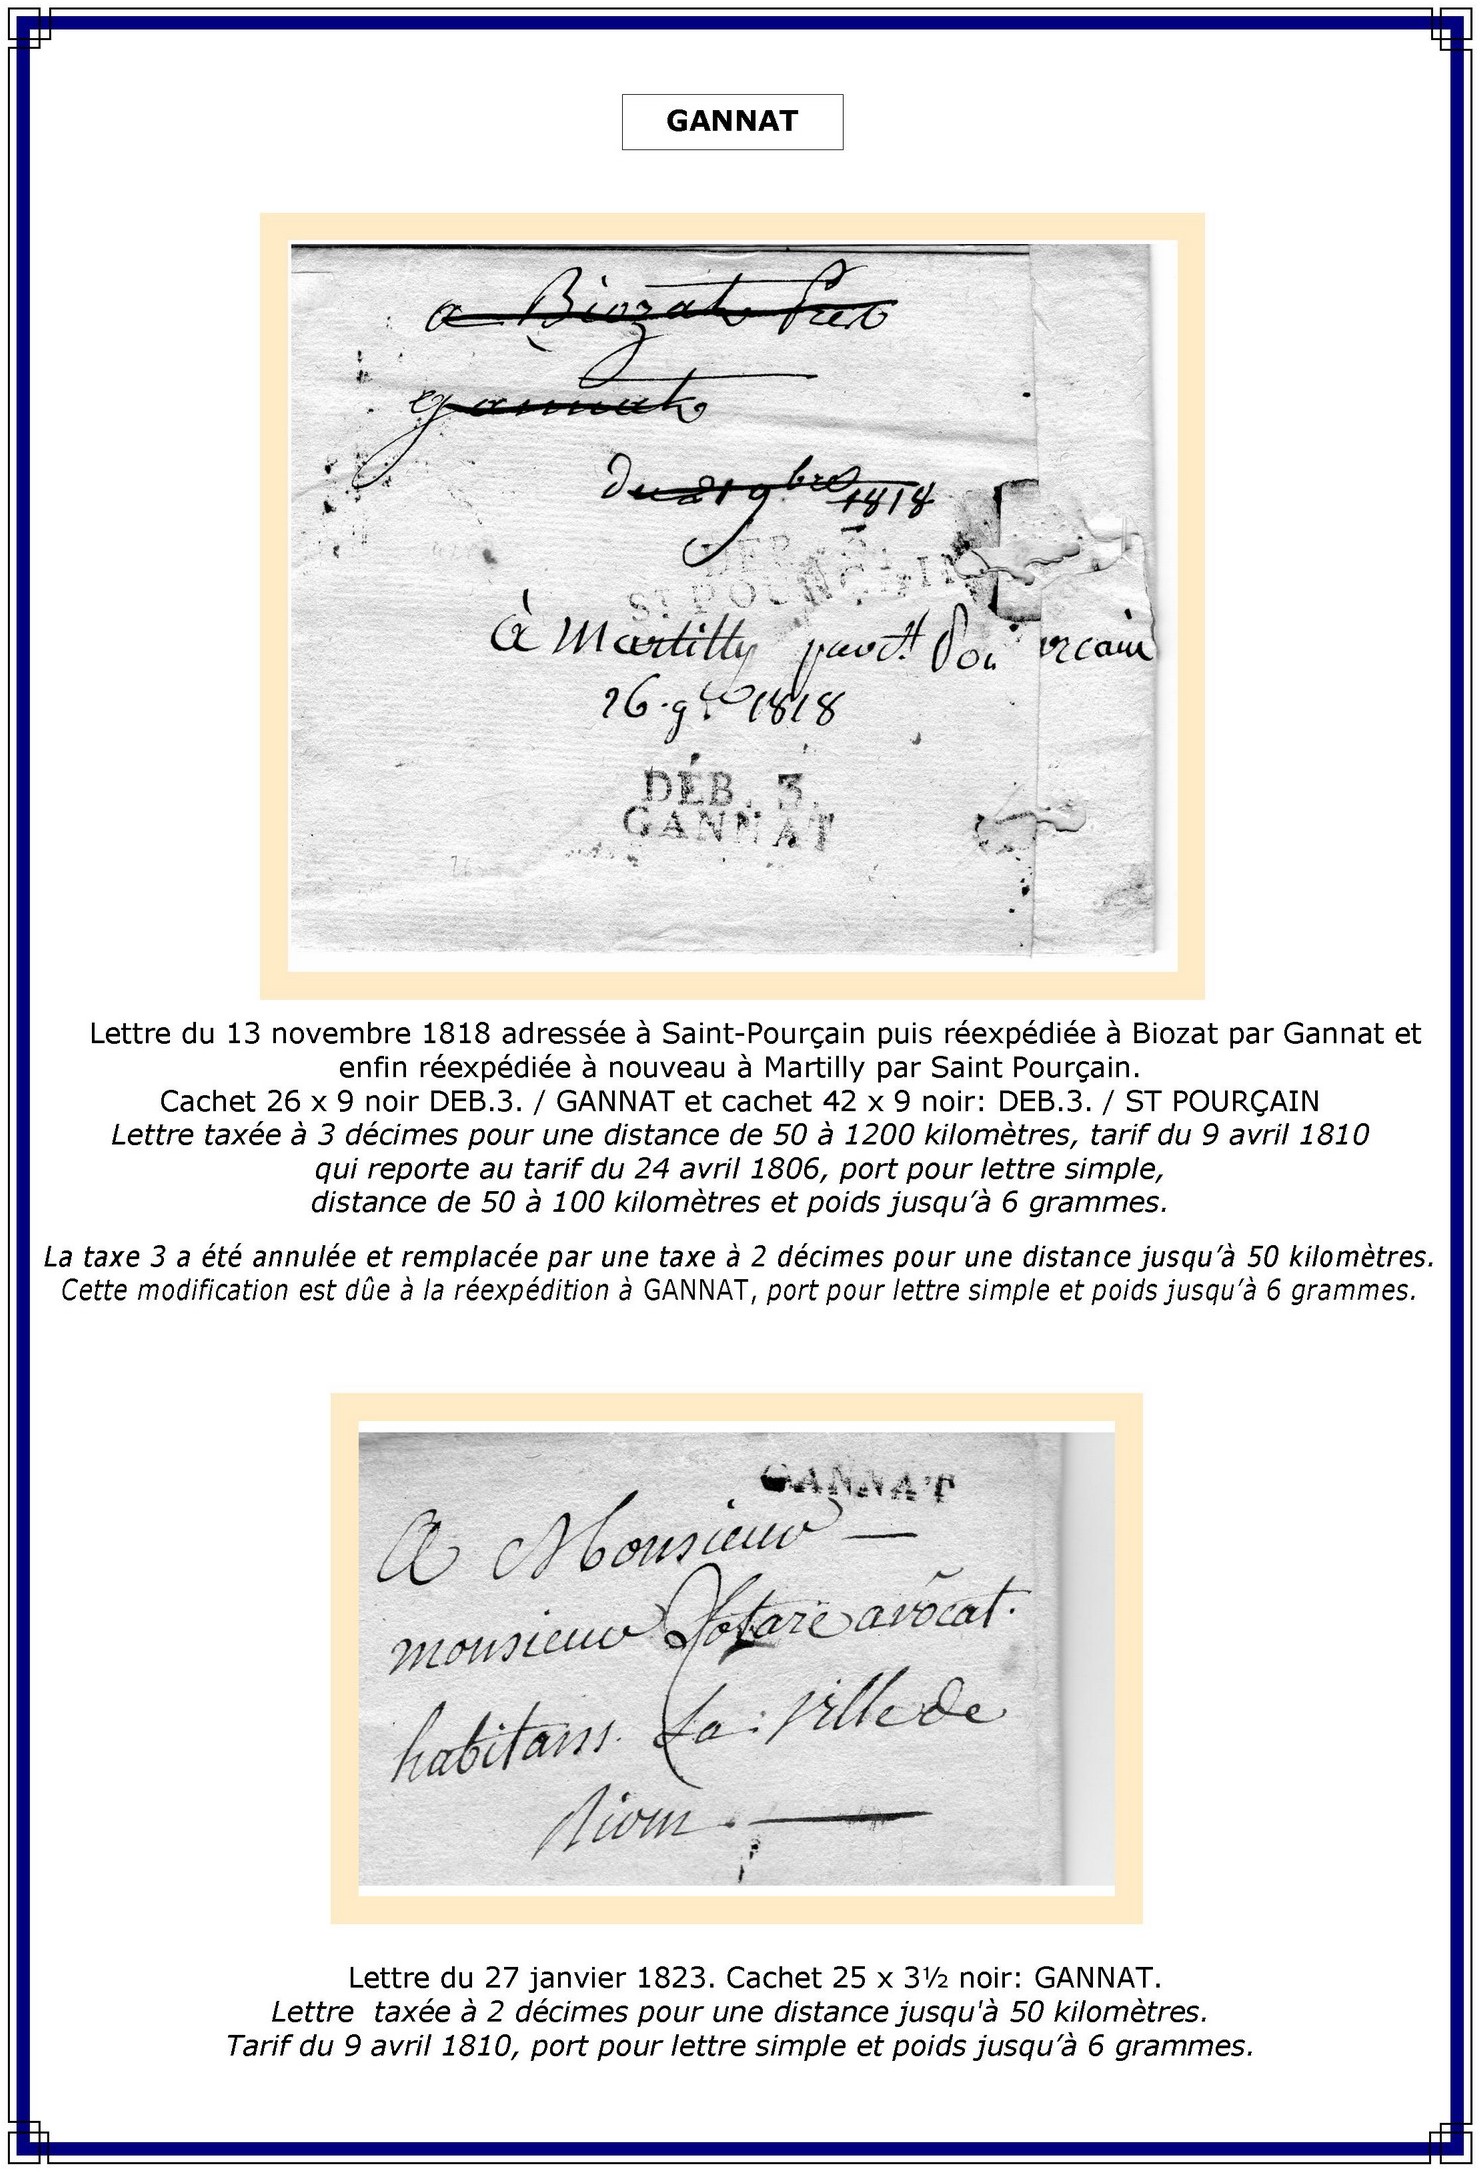 GANNAT
a Biozat
gannat
1818
DEB. 3.
ST POURÇAIN
à Martilly par St Pourçain
26 9bre 1818
DÉB. 3.
GANNAT
Lettre du 13 novembre 1818 adressée à Saint-Pourçain puis réexpédiée à Biozat par Gannat et
enfin réexpédiée à nouveau à Martilly par Saint Pourçain.
Cachet 26 x 9 noir DEB.3. / GANNAT et cachet 42 x 9 noir: DEB.3. / ST POURÇAIN
Lettre taxée à 3 décimes pour une distance de 50 à 1200 kilomètres, tarif du 9 avril 1810
qui reporte au tarif du 24 avril 1806, port pour lettre simple,
distance de 50 à 100 kilomètres et poids jusqu’à 6 grammes.
La taxe 3 a été annulée et remplacée par une taxe à 2 décimes pour une distance jusqu’à 50 kilomètres.
Cette modification est dûe à la réexpédition à GANNAT, port pour lettre simple et poids jusqu’à 6 grammes.
GANNAT
A Monsieur
monsieur avocat.
habitans. La: ville de
Riom
Lettre du 27 janvier 1823. Cachet 25 x 3½ noir: GANNAT.
Lettre taxée à 2 décimes pour une distance jusqu'à 50 kilomètres.
Tarif du 9 avril 1810, port pour lettre simple et poids jusqu’à 6 grammes.